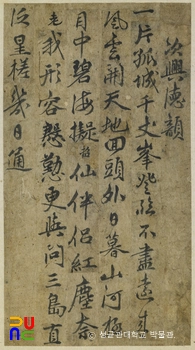 次興德韻
一片孤城千丈峯登臨不盡
風雲闢天地回頭外日暮山河極
目中碧海擬仙伴侶紅塵奈
老我形容慇懃更與問三島直
泛星槎幾日通
성균관대학교 박물관